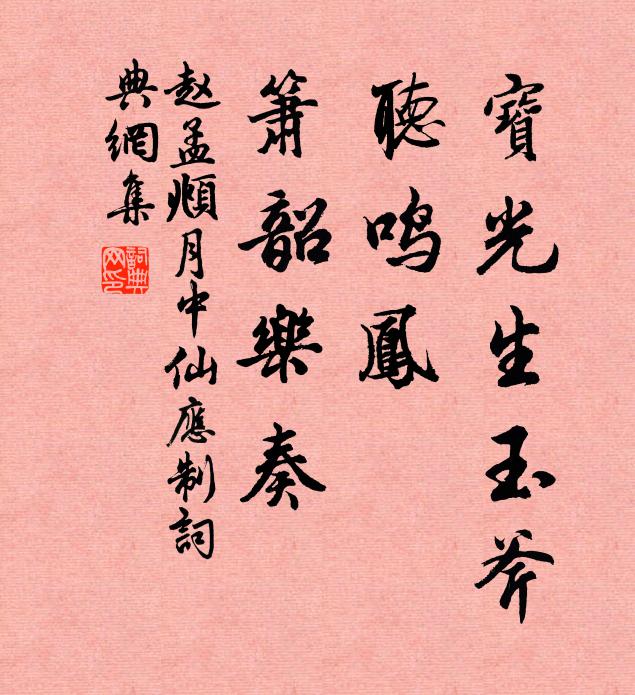 寶光生玉斧
聽鳴鳳
簫韶樂奏
赵孟頫月中仙應制詞
典網集
詞典网印